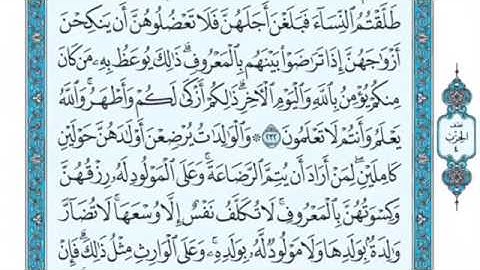 طَلَّقْتُمُ ٱلنِّسَآءَ فَبَلَغْنَ أَجَلَهُنَّ فَلَا تَعْضُلُوهُنَّ أَن يَنكِحْنَ
أَزْوَٰجَهُنَّ إِذَا تَرَٰضَوْا۟ بَيْنَهُم بِٱلْمَعْرُوفِ ۗ ذَٰلِكَ يُوعَظُ بِهِۦ مَن كَانَ
مِنكُمْ يُؤْمِنُ بِٱللَّهِ وَٱلْيَوْمِ ٱلْـَٔاخِرِ ۗ ذَٰلِكُمْ أَزْكَىٰ لَكُمْ وَأَطْهَرُ ۗ وَٱللَّهُ
يَعْلَمُ وَأَنتُمْ لَا تَعْلَمُونَ ٢٣٢ ۞ وَٱلْوَٰلِدَٰتُ يُرْضِعْنَ أَوْلَٰدَهُنَّ حَوْلَيْنِ
كَامِلَيْنِ ۖ لِمَنْ أَرَادَ أَن يُتِمَّ ٱلرَّضَاعَةَ ۚ وَعَلَى ٱلْمَوْلُودِ لَهُۥ رِزْقُهُنَّ
وَكِسْوَتُهُنَّ بِٱلْمَعْرُوفِ ۚ لَا تُكَلَّفُ نَفْسٌ إِلَّا وُسْعَهَا ۚ لَا تُضَآرَّ
وَٰلِدَةٌۢ بِوَلَدِهَا وَلَا مَوْلُودٌ لَّهُۥ بِوَلَدِهِۦ ۚ وَعَلَى ٱلْوَارِثِ مِثْلُ ذَٰلِكَ ۗ فَإِنْ
نصف
الحزب
٤